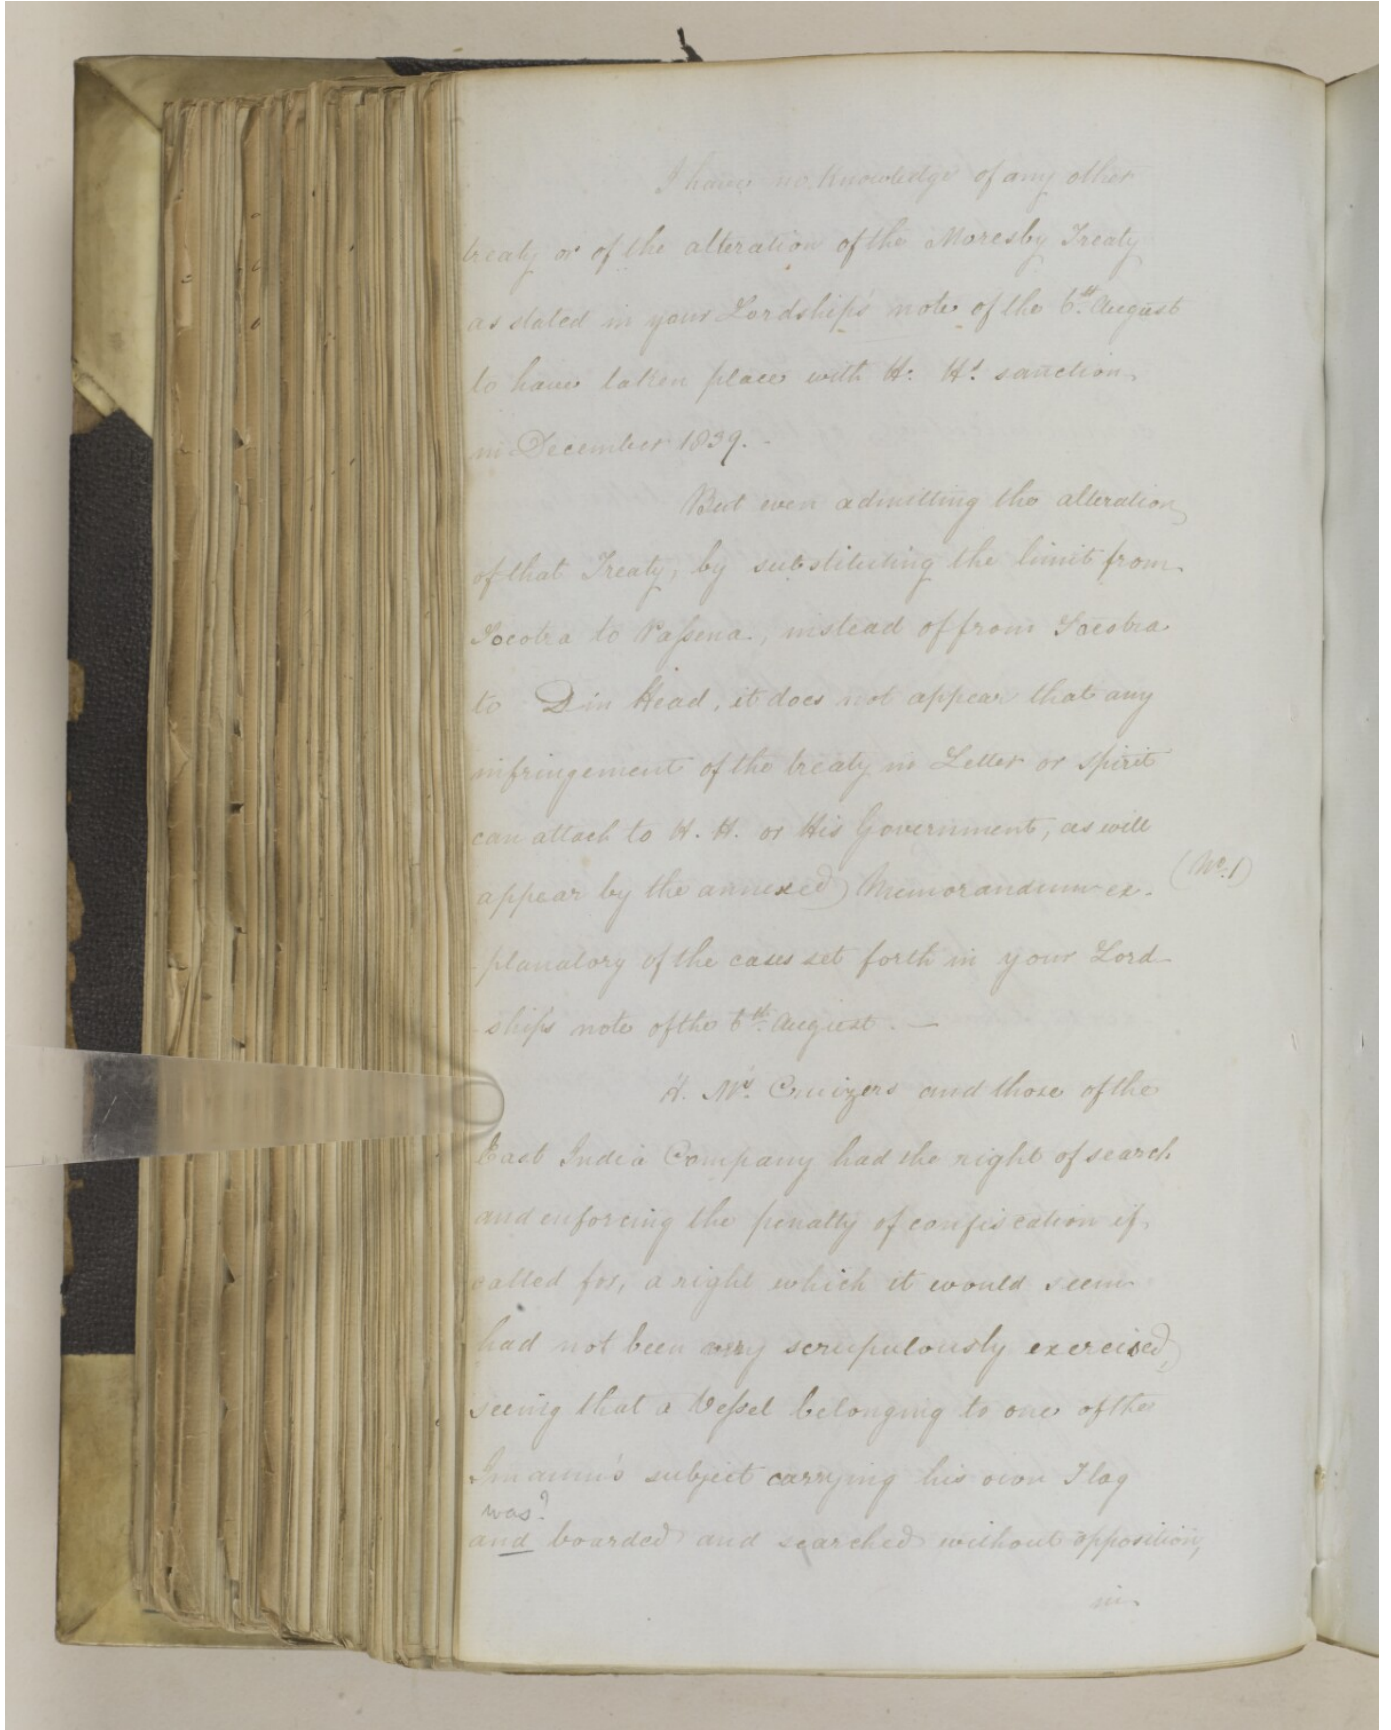 I have no knowledge of any other
treaty or of the alteration of the Moresby Treaty
as stated in your Lordship's note of the 6.th August
to have taken place with H: H.s sanction
in December 1839. -
But even admitting the alteration
of that Treaty, by substituting the limit from
Socotra to Passena, instead of from Socotra
to Diu Head, it does not appear that any
infringement of the treaty in Letter or spirit
can attach to H. H. or His Government, as will
appear by the annexed Memorandum ex- (No. 1)
-planatory of the cases set forth in your Lord-
-ships note of the 6.th August. —
H. M's. Cruizers and those of the
East India Company had the right of search
and enforcing the penalty of confiscation if
called for, a right which it would seem
had not been very scrupulously exercised,
seeing that a Vessel belonging to one of the
Imaum's subject carrying his own Flag
was?
and boarded and searched without opposition,
in